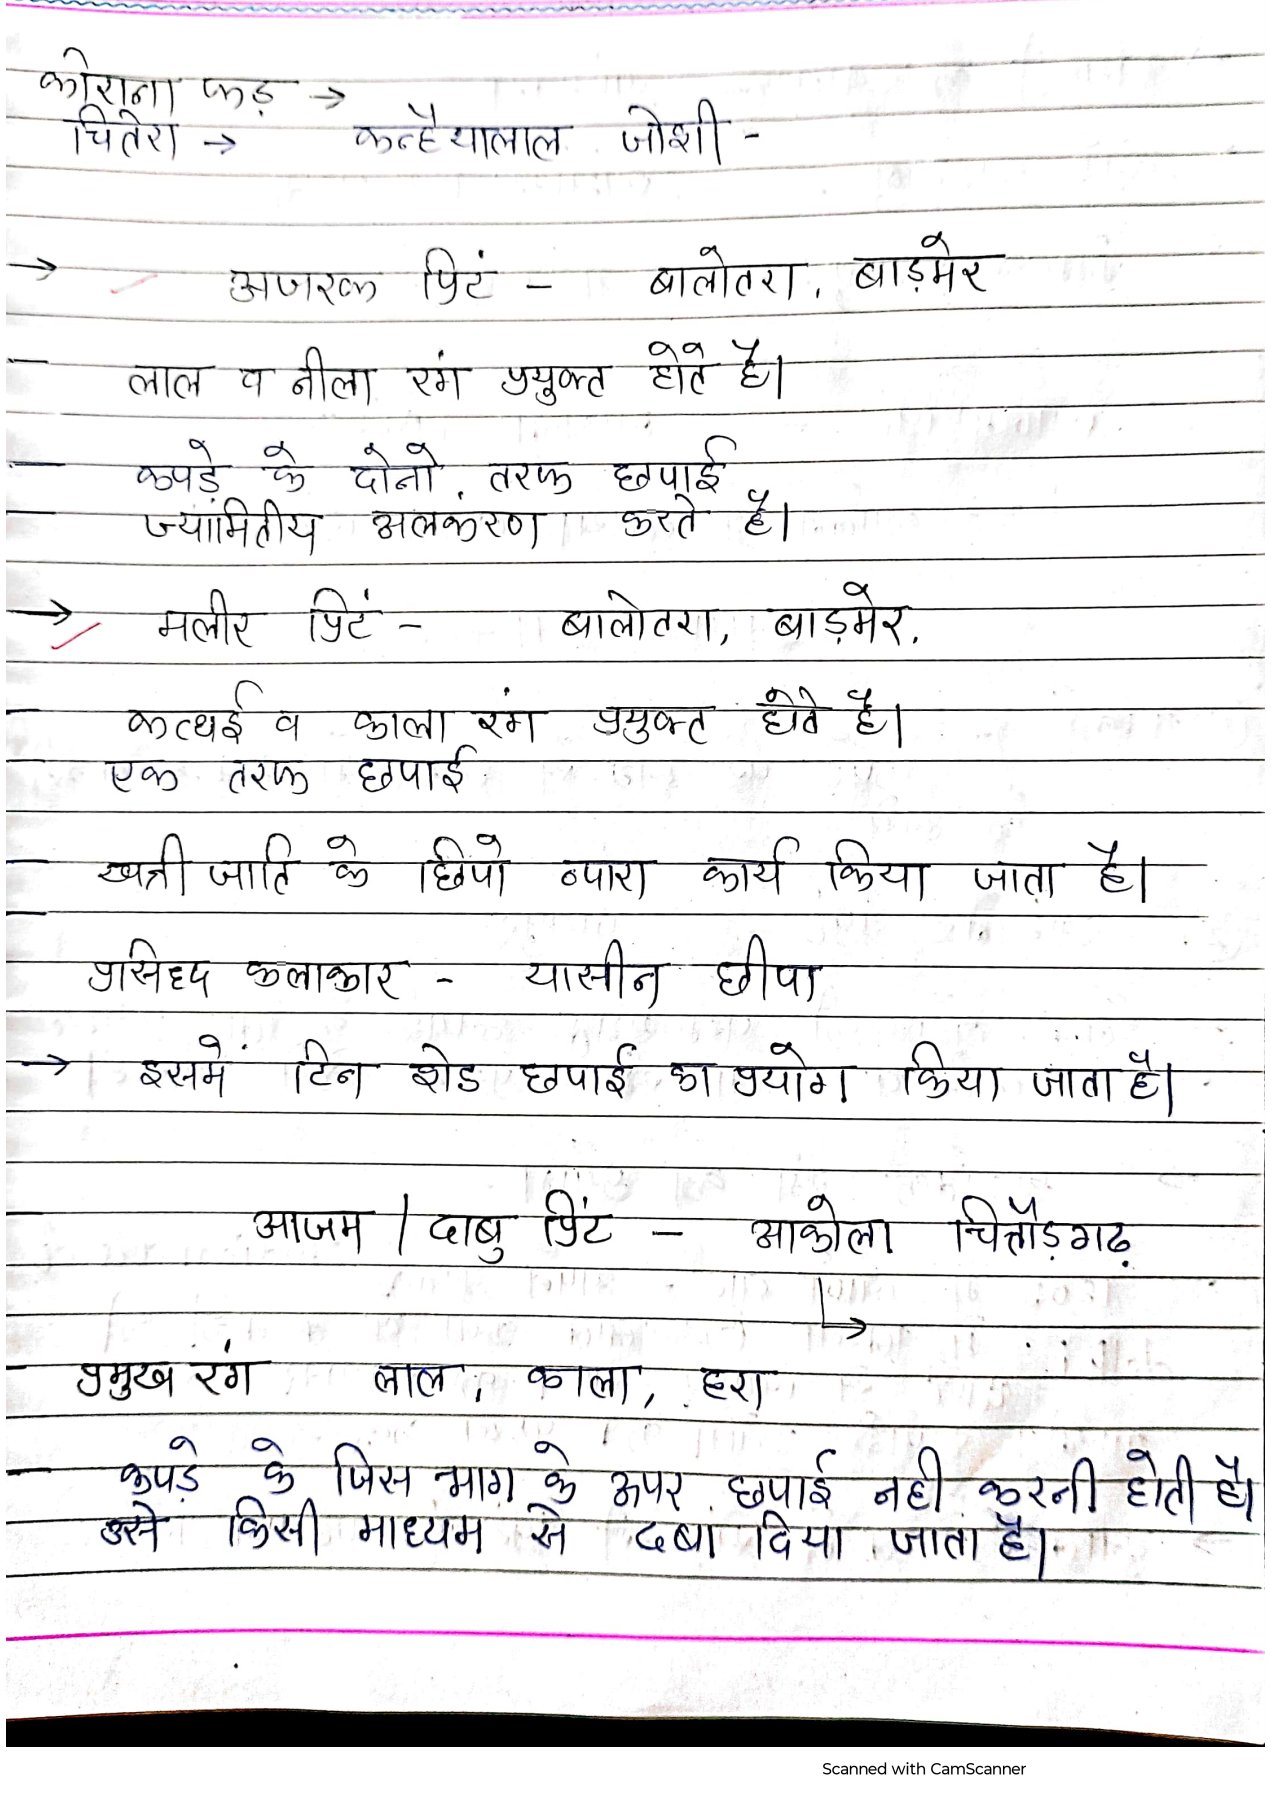 कोराना फड़ →
चितेरा → कन्हैयालाल जोशी -
→ अजरक प्रिटं - बालोतरा, बाड़मेर
लाल व नीला रंग प्रयुक्त होते है।
कपड़े के दोनो तरफ छपाई
ज्यामितीय अलकरण करते है।
→ मलीर प्रिटं - बालोतरा, बाड़मेर.
कत्थई व काला रंग प्रयुक्त होते है।
एक तरफ छपाई
खत्री जाति के छिपो व्दारा कार्य किया जाता है।
प्रसिध्द कलाकार - यासीन छीपा
→ इसमें टिन शेड छपाई का प्रयोग किया जाता है।
आजम / दाबु प्रिंट - आकोला चित्तौड़गढ़
प्रमुख रंग लाल, काला, हरा
कपड़े के जिस भाग के ऊपर छपाई नही करनी होती है।
उसे किसी माध्यम से दबा दिया जाता है।
Scanned with CamScanner